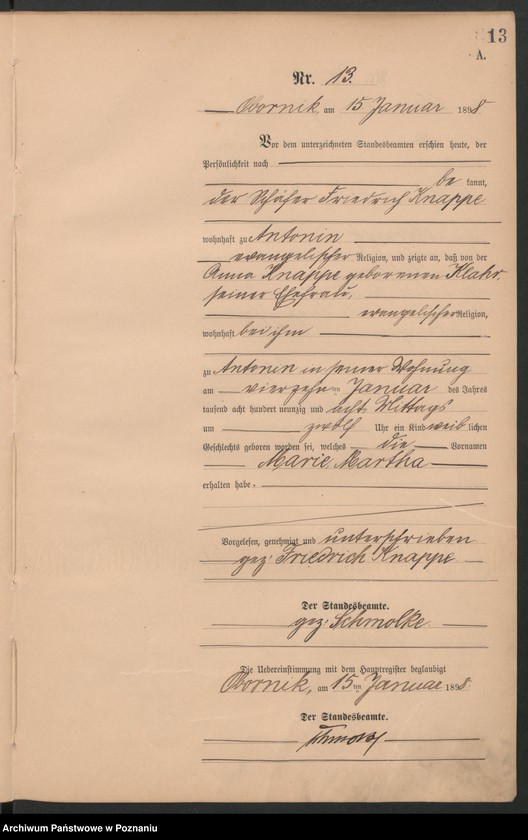 13
A.
Nr. 13.
Obornik, am 15 Januar 1898
Vor dem unterzeichneten Standesbeamten erschien heute, der
Persönlichkeit nach
be kannt,
der Schäfer Friedrich Knappe
wohnhaft zu Antonin
evangelischer Religion, und zeigte an, daß von der
Anna Knappe geborenen Klahr,
seiner Ehefrau,
evangelischer Religion,
wohnhaft bei ihm
zu Antonin in seiner Wohnung
am vierzehn ten Januar des Jahres
tausend acht hundert neunzig und acht Mittags
um zwölf Uhr ein Kind weib lichen
Geschlechts geboren worden sei, welches die Vornamen
Marie Martha
erhalten habe.
Vorgelesen, genehmigt und unterschrieben
gez: Friedrich Knappe
Der Standesbeamte.
gez: Schmolke.
Die Uebereinstimmung mit dem Hauptregister beglaubigt
Obornik, am 15 ten Januar 1898.
Der Standesbeamte.
Schmolke
Archiwum Państwowe w Poznaniu